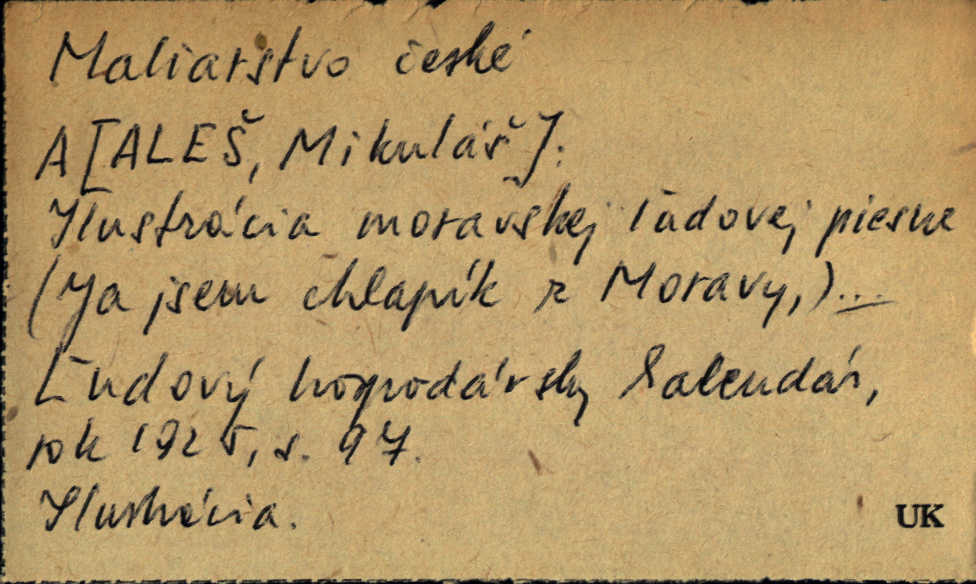 Maliarstvo české
A[ALEŠ, Mikuláš]:
Ilustrácia moravskej ľudovej piesne
(Ja jsem chlapík z Moravy,)...
Ľudový hospodársky kalendár,
rok 1925, s. 97.
Ilustrácia.
UK